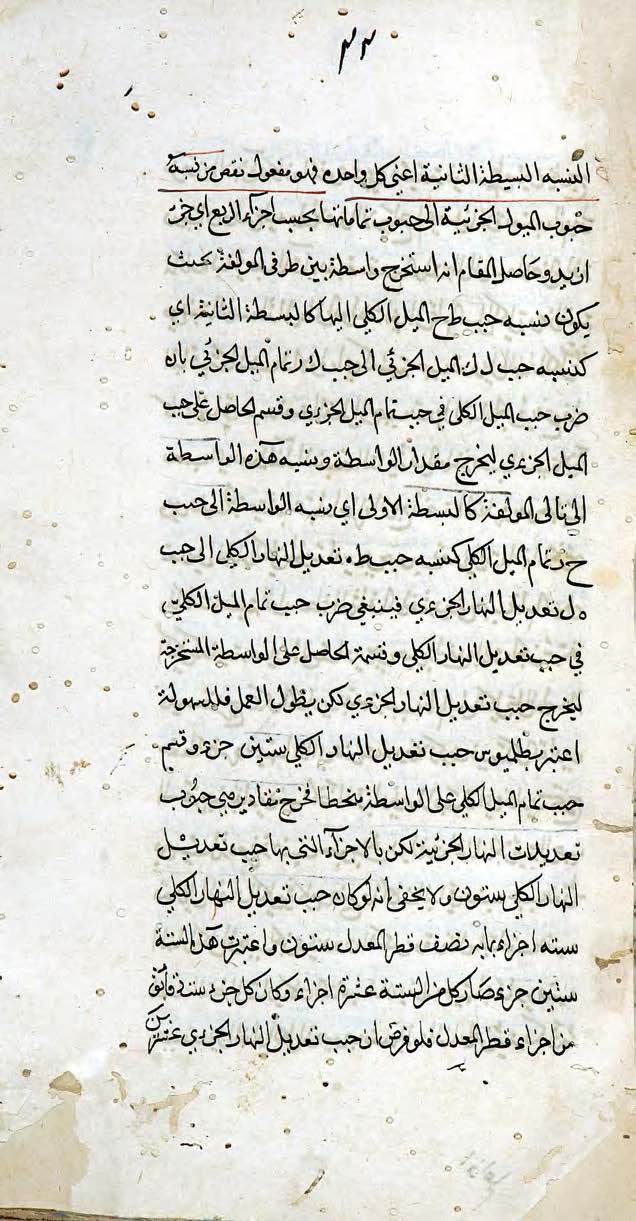 ٣٣
النسبه البسيطة الثانية اعنى كل واحده فهو مفعول نقص من نسبة
جيوب الميول الجزئية الى جيوب تماماتها بحسب اجزاء الربع اى جزء
اريد وحاصل المقام انه استخرج واسطة بين طرفى المولفة بحيث
يكون نسبه جيب طح الميل الكلى اليها كالبسطة الثانية اى
كنسبه جيب ل ك الميل الجزئي الى جيب ك ر تمام الميل الجزئي بان
ضرب جيب الميل الكلى فى جيب تمام الميل الجزءى وقسم الحاصل على جيب
الميل الجزءى ليخرج مقدار الواسطة ونسبه هذه الواسطة
الى تالى المولفة كالبسطة الاولى اى نسبه الواسطة الى جيب
ح ر تمام الميل الكلى كنسبه جيب ط ه تعديل النهار الكلى الى جيب
ه ل تعديل النهار الجزءى فينبغى ضرب جيب تمام الميل الكلى
فى جيب تعديل النهار الكلى وقسمة الحاصل على الواسطة المستخرجة
ليخرج جيب تعديل النهار الجزءى لكن يطول العمل فللسهولة
اعتبر بطلميوس جيب تعديل النهار الكلى ستين جزء وقسم
جيب تمام الميل الكلى على الواسطة منحطا فخرج مقادير هى جيوب
تعديلات النهار الجزئية لكن بالاجزاء التى بها جيب تعديل
النهار الكلى ستون ولا يخفى انه لو كان جيب تعديل النهار الكلى
سته اجزاء بما به نصف قطر المعدل ستون واعتبرت هذه الستة
ستين جزء صار كل من الستة عشرة اجزاء وكان كل جزء ست دقائق
من اجزاء قطر المعدل فلو فرض ان جيب تعديل النهار الجزءى عشرين